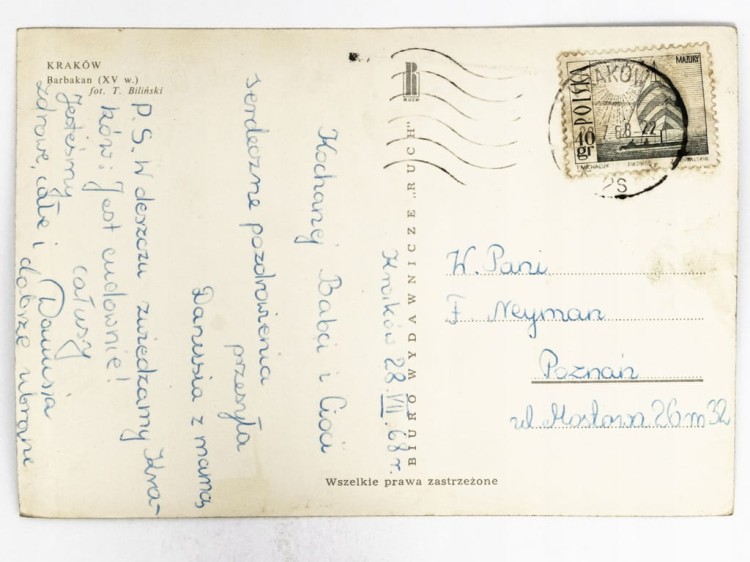 KRAKÓW
Barbakan (XV w.)
fot. T. Biliński
Kraków 28.VII.68r.
Kochanej Babci i Cioci
serdeczne pozdrowienia
przesyła
Danusia z mamą
P.S. W deszczu zwiedzamy Kra-
ków: Jest cudownie!
całusy
Danusia
Jesteśmy
zdrowe, całe i dobrze ubrane
BIURO WYDAWNICZE „RUCH"
RUCH
Wszelkie prawa zastrzeżone
MAZURY
POLSKA
40 gr
KRAKÓW
W. Pani
F. Neyman
Poznań
ul Mostowa 26 m 32